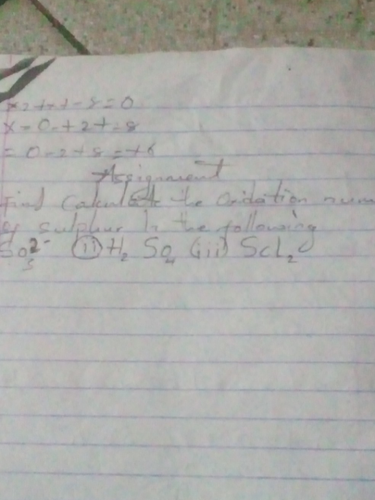 x = 0 - + 2 + = 8
= 0 - 2 + 8 = + 6
Assignment
Find Calculate the Oxidation num
of sulphur in the following
SO₃²⁻ (ii) H₂ SO₄ (iii) SCL₂